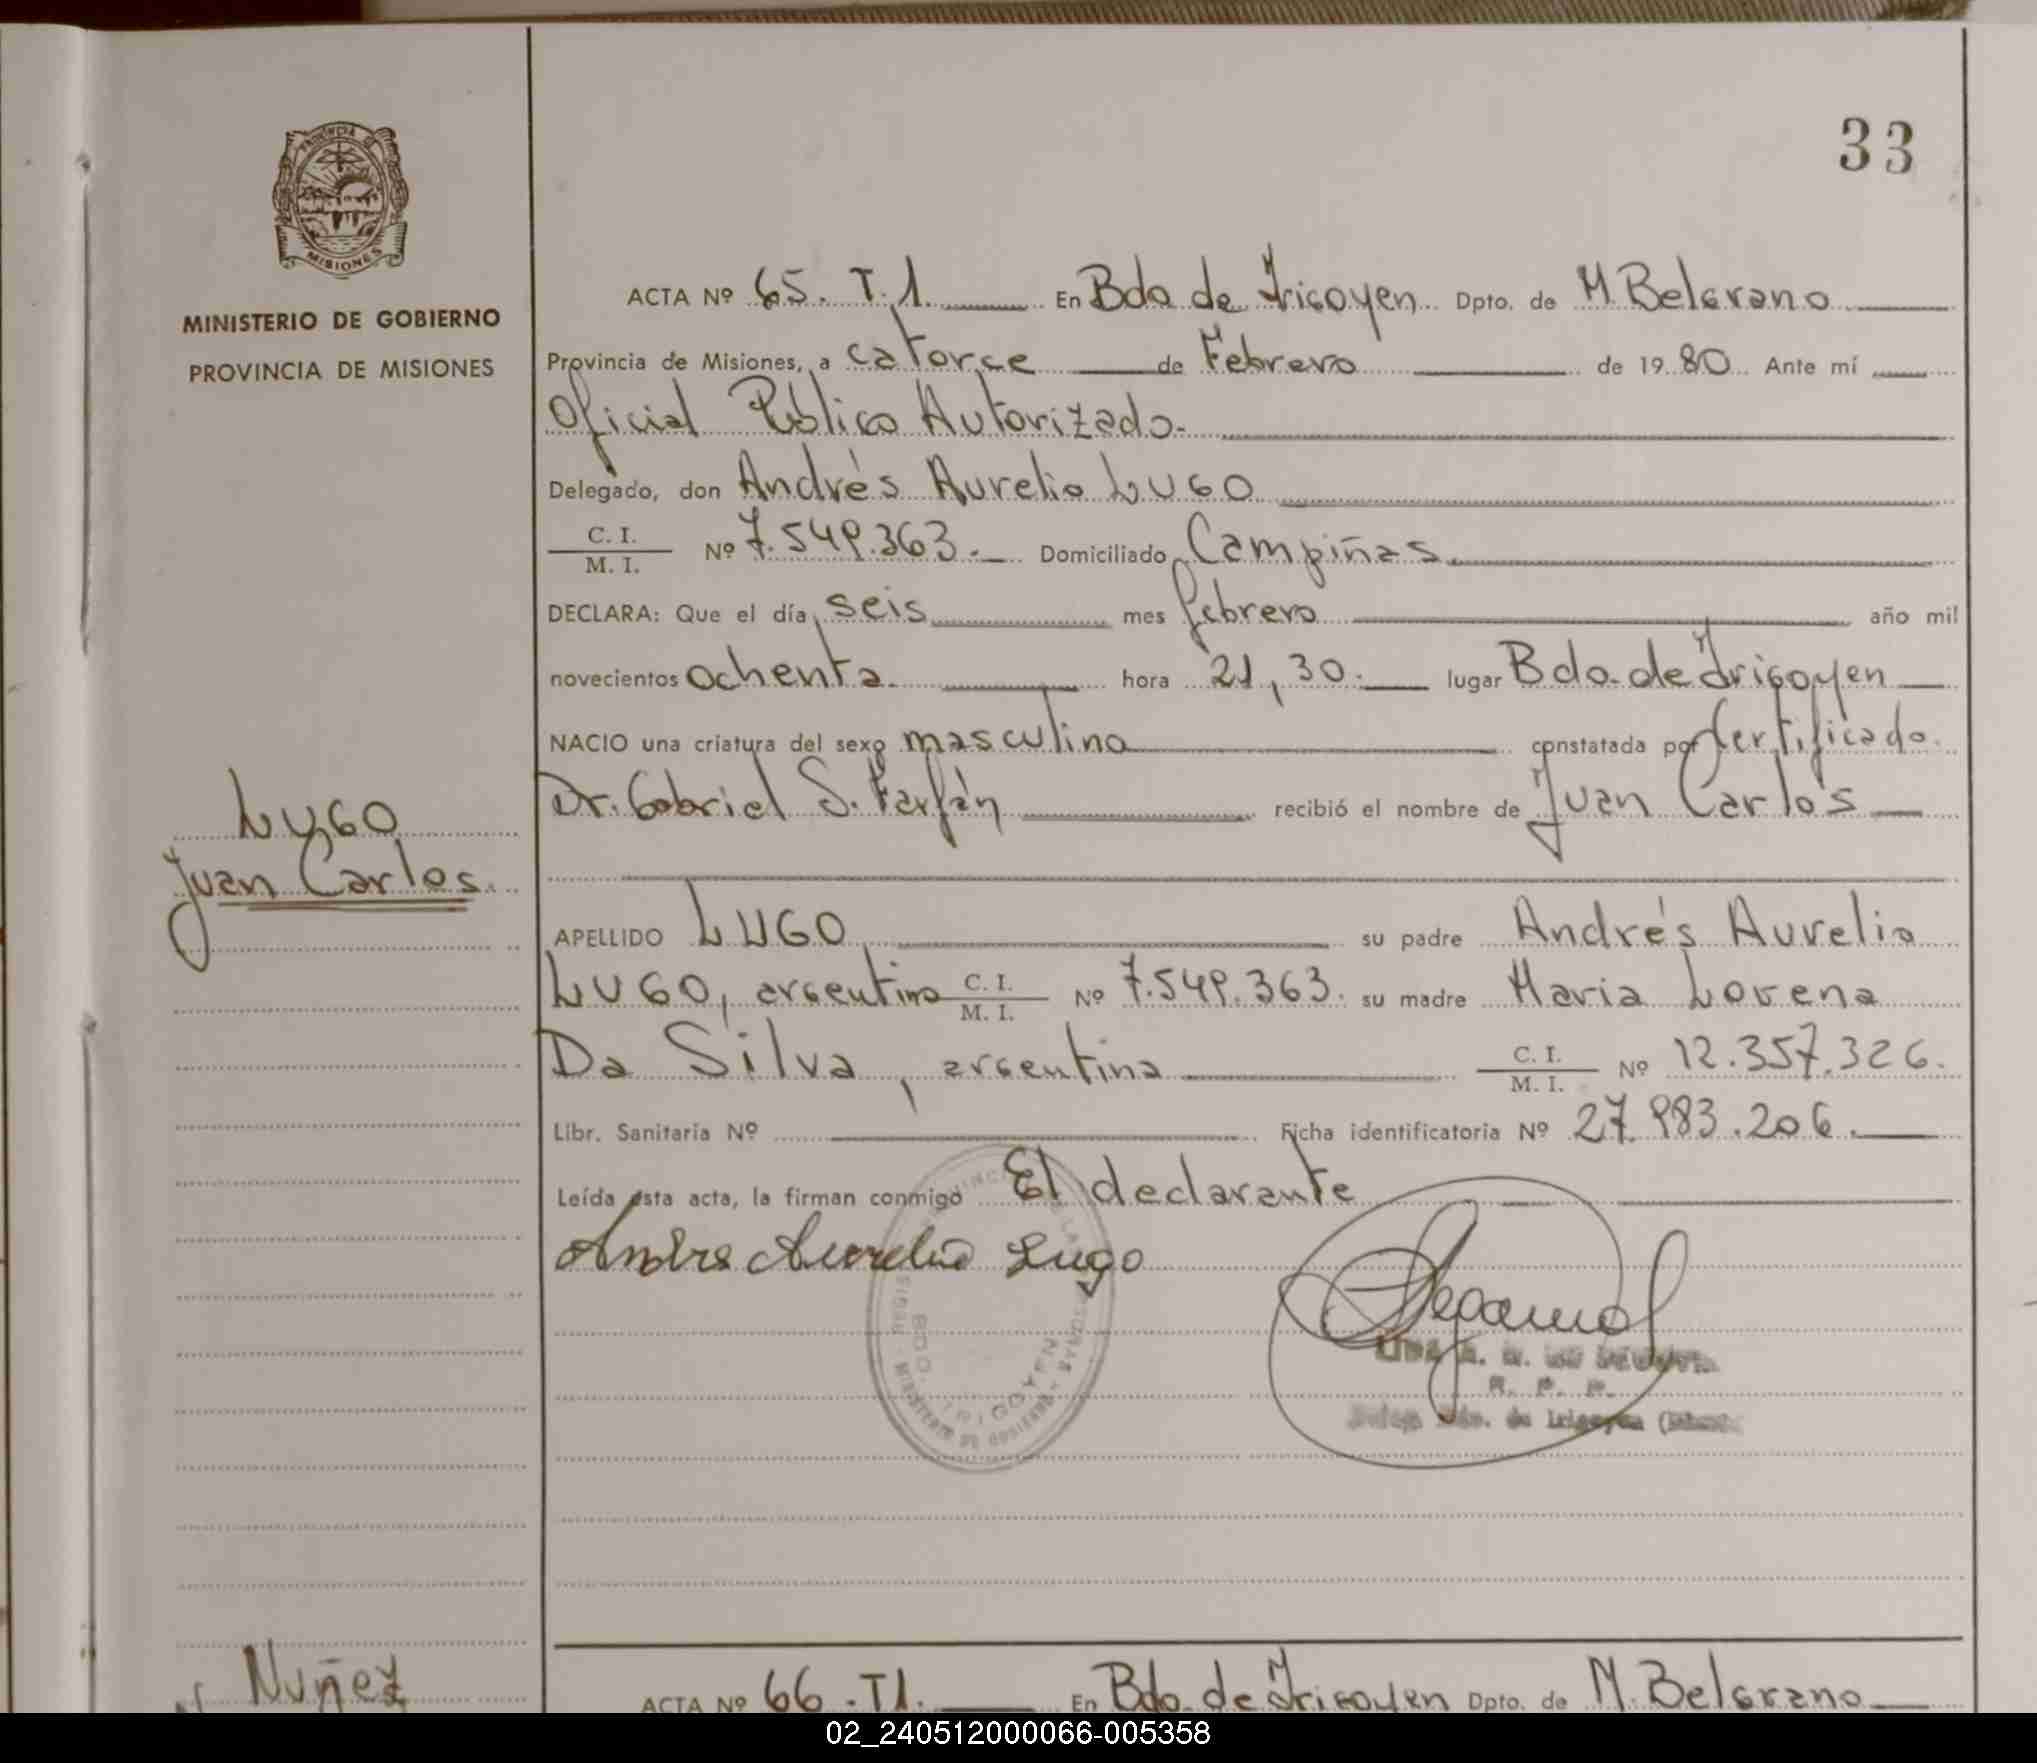 33
PROVINCIA DE
MISIONES
MINISTERIO DE GOBIERNO
PROVINCIA DE MISIONES
ACTA Nº 65. T.1. En Bdo de Irigoyen Dpto. de M. Belgrano
Provincia de Misiones, a catorce de Febrero de 1980 Ante mí
Oficial Público Autorizado.
Delegado, don Andrés Aurelio LUGO
C. I.
M. I. Nº 7.549.363. Domiciliado Campiñas
DECLARA: Que el día seis mes febrero año mil
novecientos ochenta. hora 21,30. lugar Bdo. de Irigoyen
NACIO una criatura del sexo masculino constatada por Certificado.
Dr. Gabriel S. Farfán recibió el nombre de Juan Carlos
LUGO
Juan Carlos.
APELLIDO LUGO su padre Andrés Aurelio
LUGO, argentino C. I.
M. I. Nº 7.549.363. su madre Maria Lorena
Da Silva, argentina C. I.
M. I. Nº 12.357.326.
Libr. Sanitaria Nº Ficha identificatoria Nº 27.983.206.
Leída esta acta, la firman conmigo El declarante
Andres Aurelio Lugo
BDO. IRIGOYEN
Nuñez
ACTA Nº 66. T1. En Bdo. de Irigoyen Dpto. de M. Belgrano
02_240512000066-005358